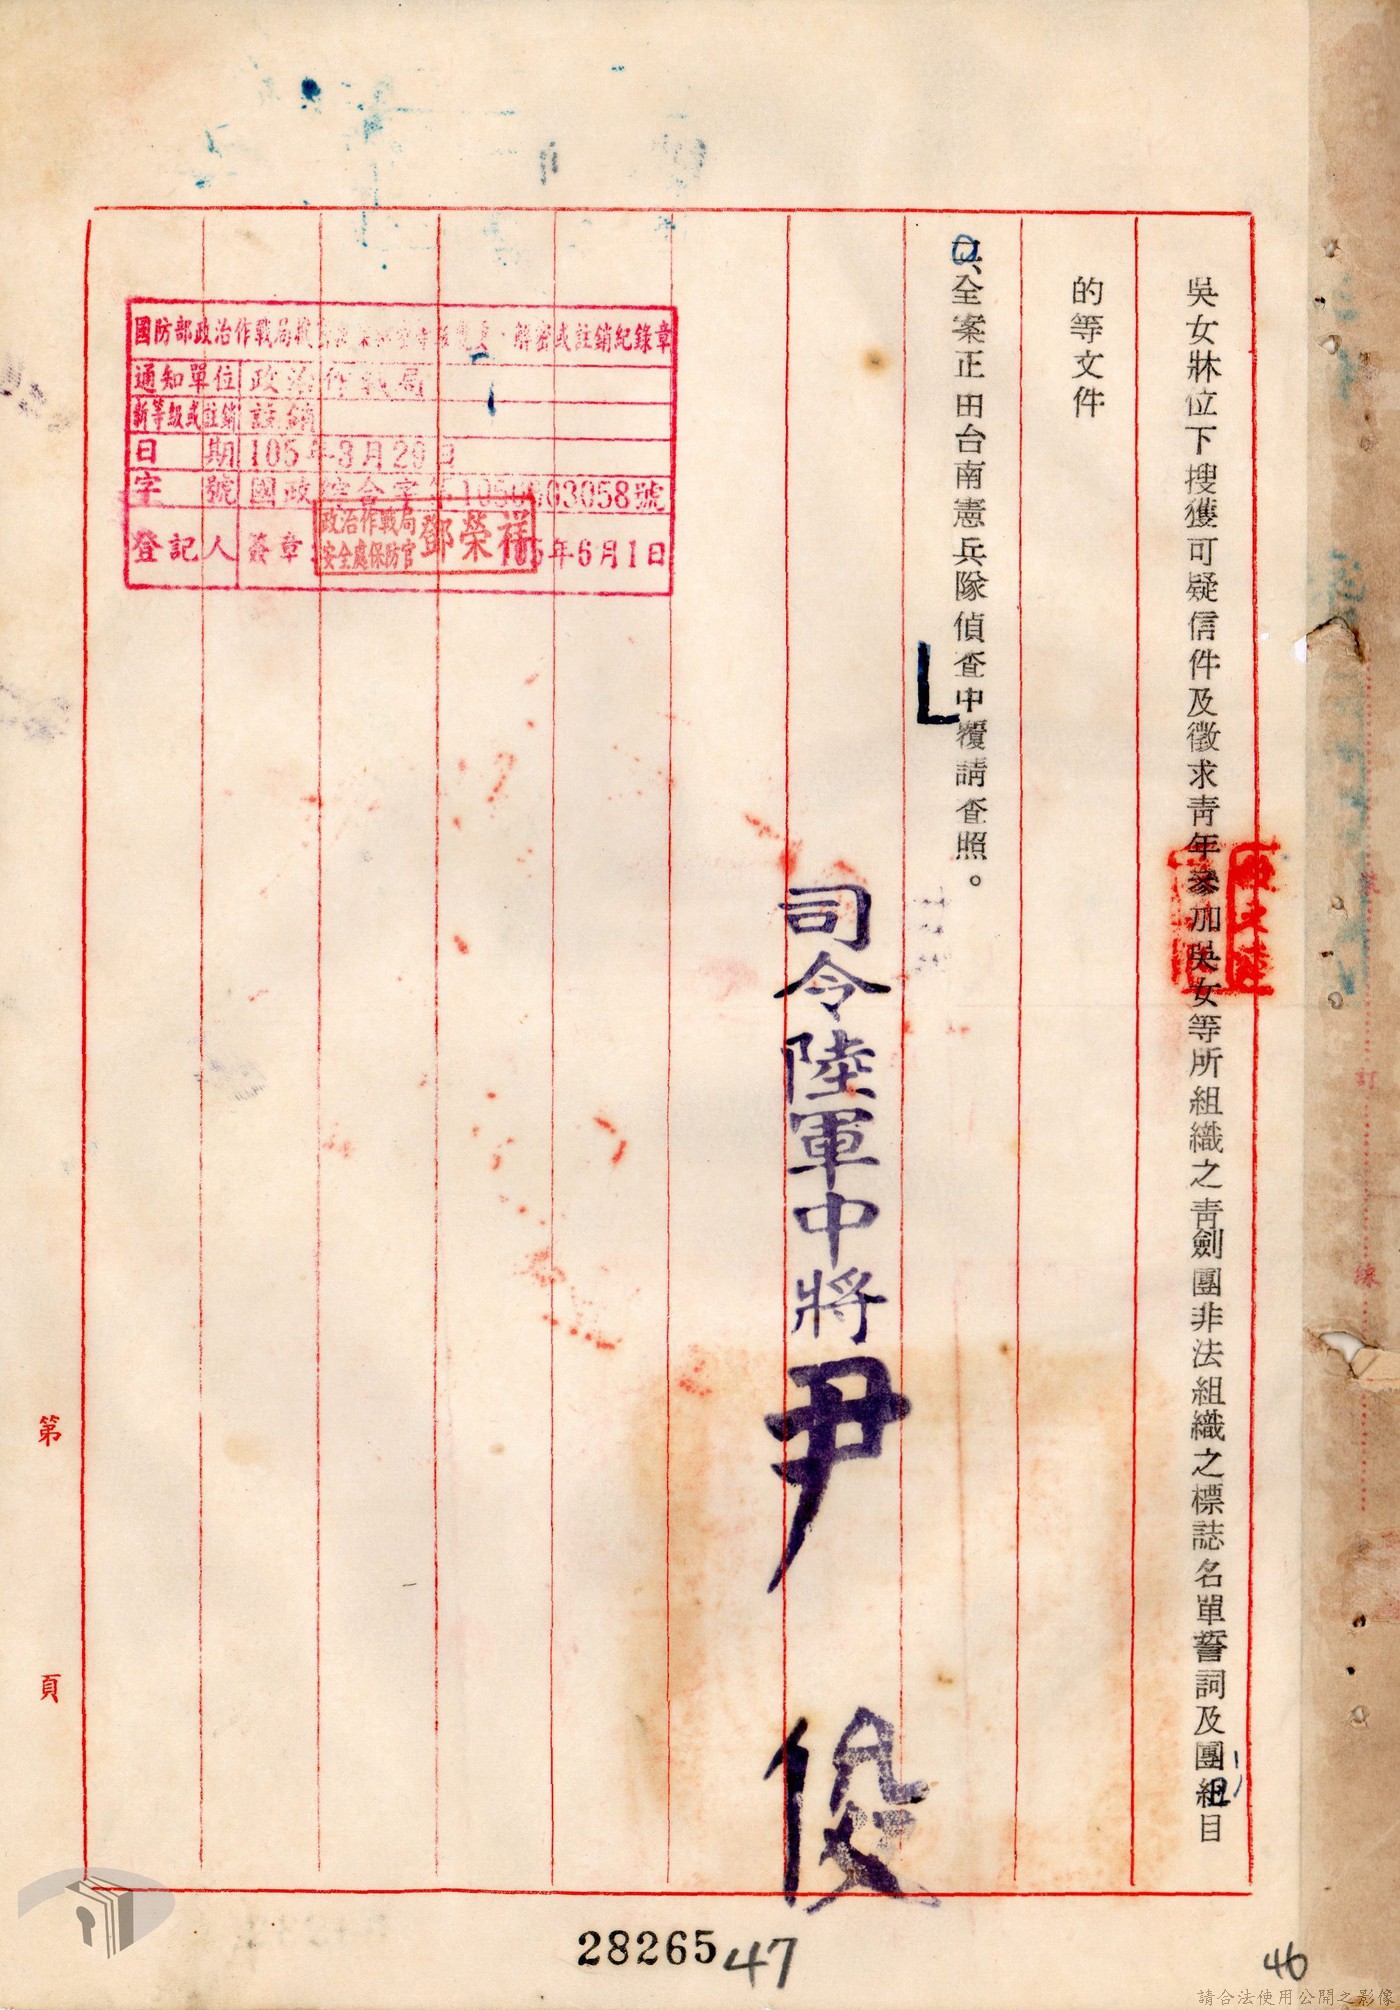 吳女牀位下搜獲可疑信件及徵求靑年參加吳女等所組織之靑劍團非法組織之標誌名單誓詞及團組目
的等文件
全案正由台南憲兵隊偵查中覆請查照。
司令陸軍中將尹俊
國防部政治作戰局 解密或註銷紀錄章
通知單位 政治作戰局
新等級或註銷 註銷
日期 105年3月29日
字號 國政綜合字第1050003058號
登記人 簽章 105年6月1日
政治作戰局
安全處保防官 鄧榮祥
第 頁
訂
線
28265
47
46
請合法使用公開之影像